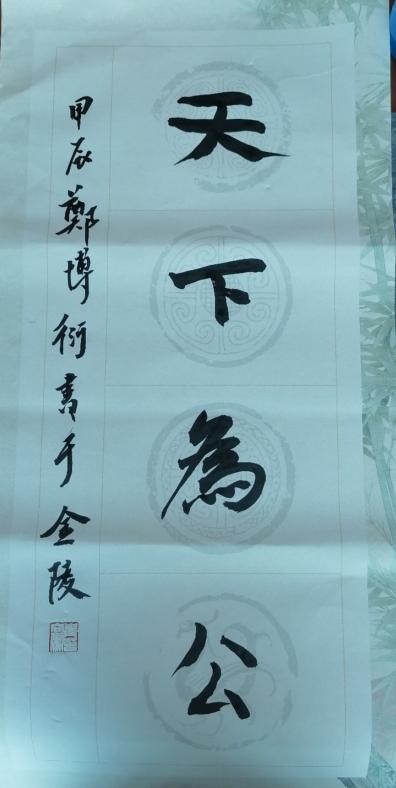 天下為公
甲辰鄭博衍書于金陵